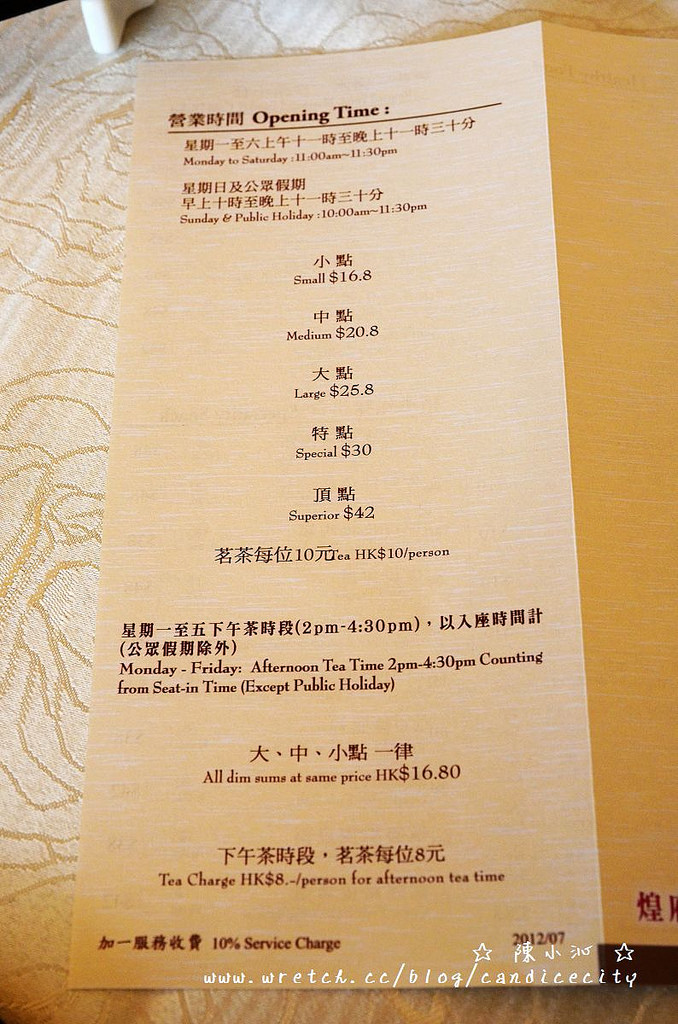 營業時間 Opening Time :
星期一至六上午十一時至晚上十一時三十分
Monday to Saturday :11:00am~11:30pm
星期日及公眾假期
早上十時至晚上十一時三十分
Sunday & Public Holiday :10:00am~11:30pm
小 點
Small $16.8
中 點
Medium $20.8
大 點
Large $25.8
特 點
Special $30
頂 點
Superior $42
茗茶每位10元Tea HK$10/person
星期一至五下午茶時段(2pm-4:30pm)，以入座時間計
(公眾假期除外)
Monday - Friday: Afternoon Tea Time 2pm-4:30pm Counting
from Seat-in Time (Except Public Holiday)
大、中、小點 一律
All dim sums at same price HK$16.80
下午茶時段，茗茶每位8元
Tea Charge HK$8.-/person for afternoon tea time
加一服務收費 10% Service Charge
2012/07
煌府
☆ 陳小沁 ☆
www.wretch.cc/blog/candicecity